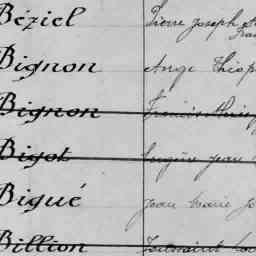 Béziel Pierre Joseph
Bignon Ange
Bignon Francis
Bigot Eugène Jean
Bigué Jean Marie
Billion Toussaint